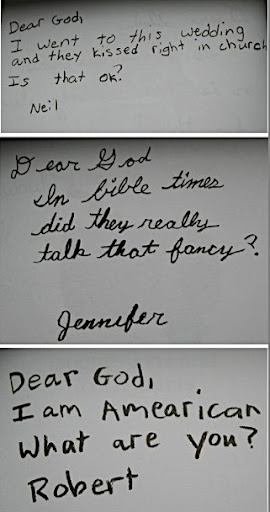 Dear God,
I went to this wedding
and they kissed right in church
Is that ok?
Neil
Dear God
In bible times
did they really
talk that fancy?
Jennifer
Dear God,
I am Amearican
What are you?
Robert